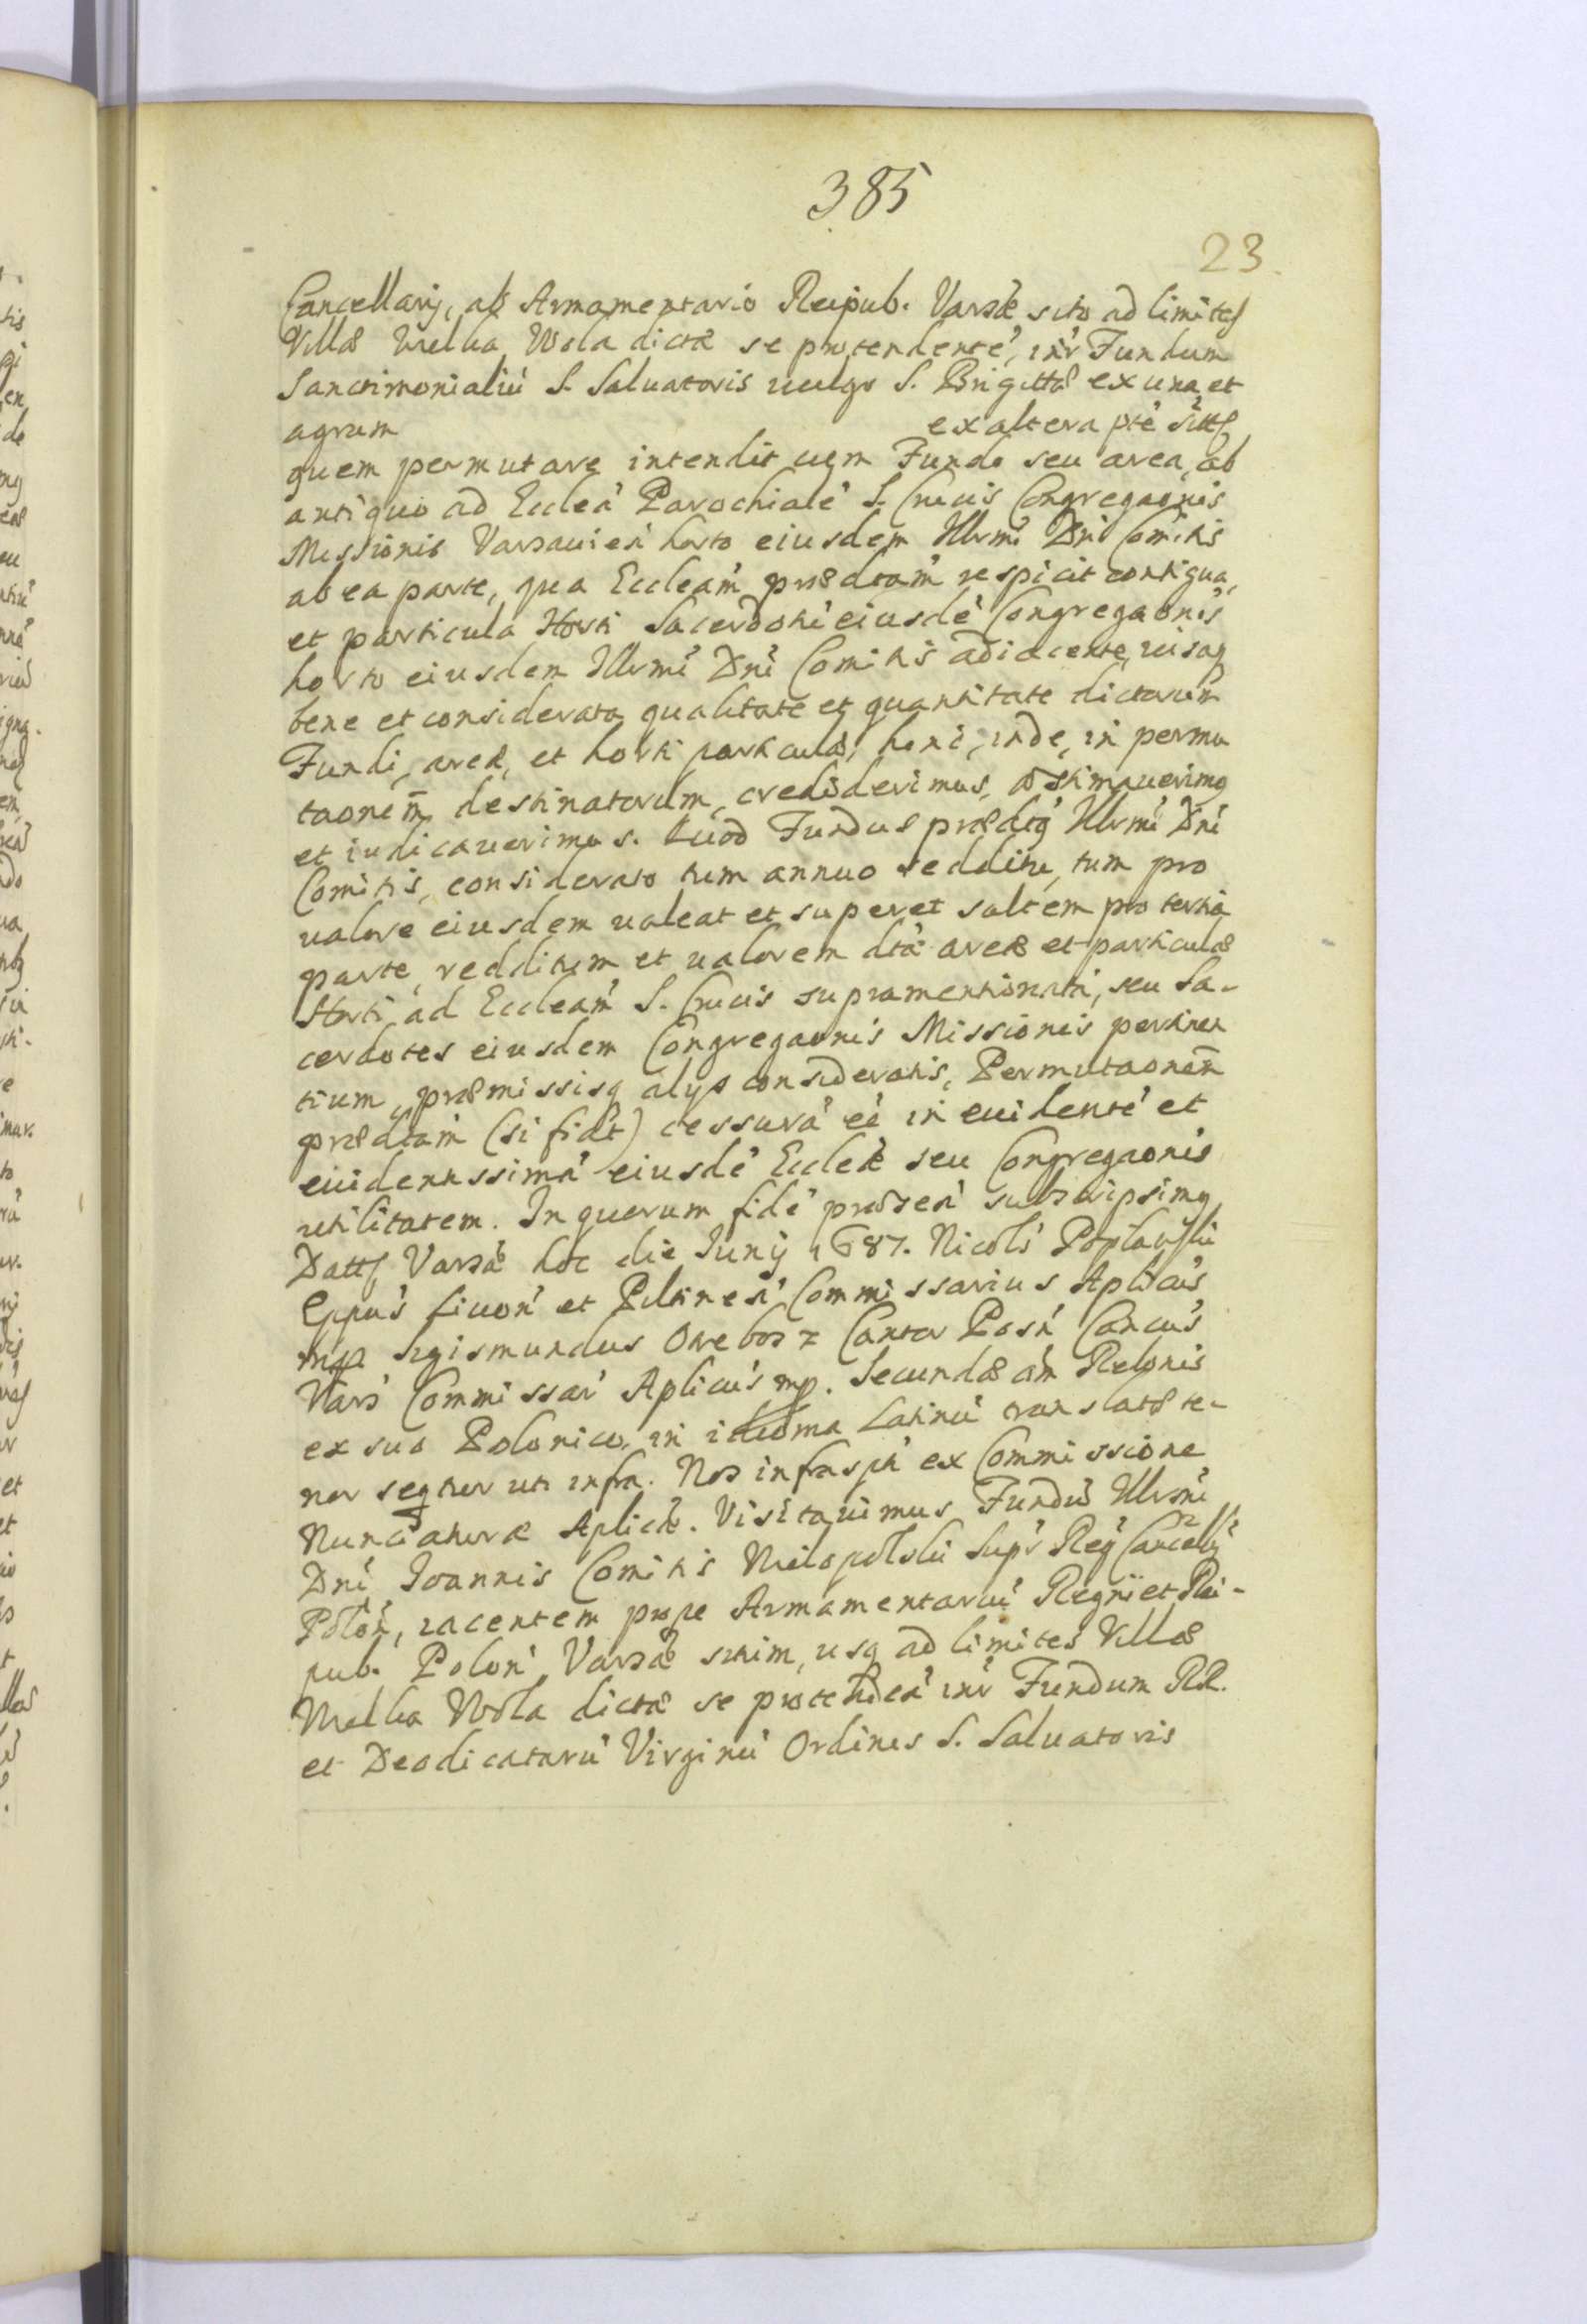 385
23
Cancellarij, ab Armamentario Reipub. Varsæ sito ad limites
Villæ Wielka Wola dictæ se protendenté, intr̀ Fundum
Sanctimonialiù S. Saluatoris uulgo S. Brigittæ ex una et
agrum ex altera ptè
quem permutare intendit cum Fundo seu area, ab
antiquo ad Eccleà Parochialè S. Crucis Congregaonis
Missionis Varsauieǹ horto eiusdem Illrmì Dnì Comitis
ab ea parte, qua Eccleam̀ prædtam̀ respicit contigua,
et particula Horti Sacerdotù eiusdè Congregaonis
horto eiusdem Illrmì Dnì Comitis adiacente, uisaq
bene et considerata qualitate et quantitate dictarum
Fundi, areæ, et horti particulæ, hinc, inde, in permu
taonem̄ destinatorum, crediderimus, æstimauerimq
et iudicauerimus. Quod Fundus prædtq Illrmì Dnì
Comitis, considerato tum annuo redditu, tum pro
ualore eiusdem ualeat et superet saltem pro tertia
parte, redditum et ualorem dtæ areæ et particulæ
Horti ad Eccleam̀ S. Crucis supramentionatà, seu Sa-
cerdotes eiusdem Congregaonis Missionis pertinen
tium, præmissisq alys consideratis, Permutaonem̄
prædtam̀ (si fiat) cessurà eè in euidentè et
euidentissimà eiusdè Eccleæ seu Congregaonis
utilitatem. In quorum fidè præseǹ subscripsimq
Datt Varsæ hoc die Iunij 1687. Nicols̀ Popławski
Eppus̀ Liuoǹ et Piltineǹ Commissarius Aplicus̀
mp Sigismundus Orebosz Cantor Posǹ Cancus̀
Vars̀ Commissar̀ Aplicus̀ mp. Secundæ am̀ Relonis
ex suo Polonico, in idioma Latinù translatæ te-
nor seqtur uti infra. Nos infrasptì ex Commissione
Nunciaturæ Aplicæ. Visitauimus Fundù Illrmì
Dnì Joannis Comitis Wielopolski Supr̀ Reg̀ Cancellij
Poloǹ, iacentem prope Armamentariù Regni et Rei-
pub. Poloǹ Varsæ situm, usq ad limites Villæ
Wielka Wola dictæ se protendeǹ intr̀ Fundum RR.
et Deodicatarù Virginù Ordines S. Saluatoris